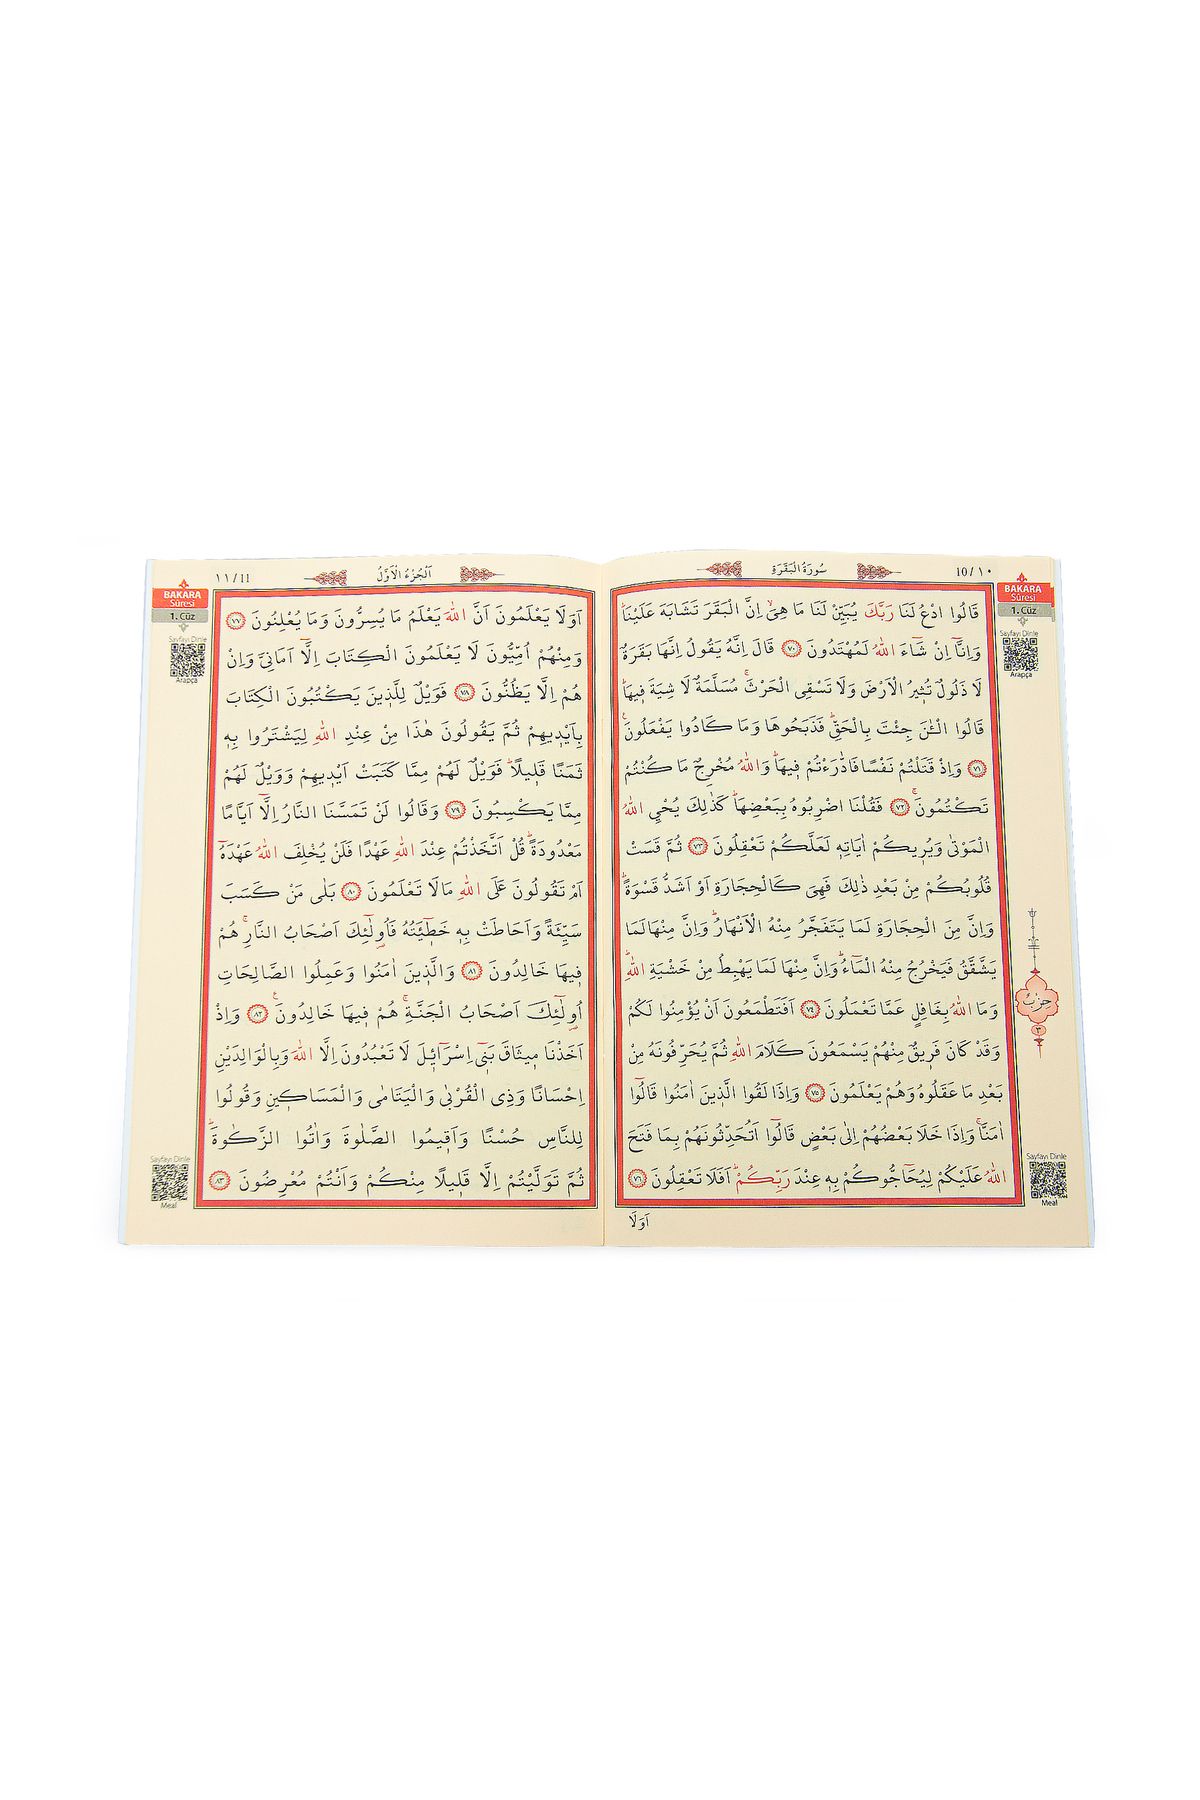 10/١٠
سُورَةُ الْبَقَرَةِ
BAKARA
Sûresi
1. Cüz
Sayfayı Dinle
Arapça
قَالُوا ادْعُ لَنَا رَبَّكَ يُبَيِّنْ لَنَا مَا هِيَۙ اِنَّ الْبَقَرَ تَشَابَهَ عَلَيْنَاۜ
وَاِنَّٓا اِنْ شَٓاءَ اللّٰهُ لَمُهْتَدُونَ ﴿٧٠﴾ قَالَ اِنَّهُ يَقُولُ اِنَّهَا بَقَرَةٌ
لَا ذَلُولٌ تُثٖيرُ الْاَرْضَ وَلَا تَسْقِي الْحَرْثَۚ مُسَلَّمَةٌ لَا شِيَةَ فٖيهَاۜ
قَالُوا الْـٰٔنَ جِئْتَ بِالْحَقِّۜ فَذَبَحُوهَا وَمَا كَادُوا يَفْعَلُونَۚ
﴿٧١﴾ وَاِذْ قَتَلْتُمْ نَفْسًا فَادّٰرَءْتُمْ فٖيهَاۜ وَاللّٰهُ مُخْرِجٌ مَا كُنْتُمْ
تَكْتُمُونَۚ ﴿٧٢﴾ فَقُلْنَا اضْرِبُوهُ بِبَعْضِهَاۜ كَذٰلِكَ يُحْيِ اللّٰهُ
الْمَوْتٰى وَيُرٖيكُمْ اٰيَاتِهٖ لَعَلَّكُمْ تَعْقِلُونَ ﴿٧٣﴾ ثُمَّ قَسَتْ
قُلُوبُكُمْ مِنْ بَعْدِ ذٰلِكَ فَهِيَ كَالْحِجَارَةِ اَوْ اَشَدُّ قَسْوَةًۜ
وَاِنَّ مِنَ الْحِجَارَةِ لَمَا يَتَفَجَّرُ مِنْهُ الْاَنْهَارُۜ وَاِنَّ مِنْهَا لَمَا
يَشَّقَّقُ فَيَخْرُجُ مِنْهُ الْمَٓاءُۜ وَاِنَّ مِنْهَا لَمَا يَهْبِطُ مِنْ خَشْيَةِ اللّٰهِۜ
وَمَا اللّٰهُ بِغَافِلٍ عَمَّا تَعْمَلُونَ ﴿٧٤﴾ اَفَتَطْمَعُونَ اَنْ يُؤْمِنُوا لَكُمْ
وَقَدْ كَانَ فَرٖيقٌ مِنْهُمْ يَسْمَعُونَ كَلَامَ اللّٰهِ ثُمَّ يُحَرِّفُونَهُ مِنْ
بَعْدِ مَا عَقَلُوهُ وَهُمْ يَعْلَمُونَ ﴿٧٥﴾ وَاِذَا لَقُوا الَّذٖينَ اٰمَنُوا قَالُٓوا
اٰمَنَّاۚ وَاِذَا خَلَا بَعْضُهُمْ اِلٰى بَعْضٍ قَالُٓوا اَتُحَدِّثُونَهُمْ بِمَا فَتَحَ
اللّٰهُ عَلَيْكُمْ لِيُحَٓاجُّوكُمْ بِهٖ عِنْدَ رَبِّكُمْۜ اَفَلَا تَعْقِلُونَ ﴿٧٦﴾
اَوَلَا
حِزْب
٣
Sayfayı Dinle
Meal
١١/11
اَلْجُزْءُ الْاَوَّلُ
BAKARA
Sûresi
1. Cüz
Sayfayı Dinle
Arapça
اَوَلَا يَعْلَمُونَ اَنَّ اللّٰهَ يَعْلَمُ مَا يُسِرُّونَ وَمَا يُعْلِنُونَ ﴿٧٧﴾
وَمِنْهُمْ اُمِّيُّونَ لَا يَعْلَمُونَ الْكِتَابَ اِلَّٓا اَمَانِيَّ وَاِنْ
هُمْ اِلَّا يَظُنُّونَ ﴿٧٨﴾ فَوَيْلٌ لِلَّذٖينَ يَكْتُبُونَ الْكِتَابَ
بِاَيْدٖيهِمْ ثُمَّ يَقُولُونَ هٰذَا مِنْ عِنْدِ اللّٰهِ لِيَشْتَرُوا بِهٖ
ثَمَنًا قَلٖيلًاۜ فَوَيْلٌ لَهُمْ مِمَّا كَتَبَتْ اَيْدٖيهِمْ وَوَيْلٌ لَهُمْ
مِمَّا يَكْسِبُونَ ﴿٧٩﴾ وَقَالُوا لَنْ تَمَسَّنَا النَّارُ اِلَّٓا اَيَّامًا
مَعْدُودَةًۜ قُلْ اَتَّخَذْتُمْ عِنْدَ اللّٰهِ عَهْدًا فَلَنْ يُخْلِفَ اللّٰهُ عَهْدَهُٓ
اَمْ تَقُولُونَ عَلَى اللّٰهِ مَا لَا تَعْلَمُونَ ﴿٨٠﴾ بَلٰى مَنْ كَسَبَ
سَيِّئَةً وَاَحَاطَتْ بِهٖ خَطٖٓيـَٔتُهُ فَاُو۬لٰٓئِكَ اَصْحَابُ النَّارِۚ هُمْ
فٖيهَا خَالِدُونَ ﴿٨١﴾ وَالَّذٖينَ اٰمَنُوا وَعَمِلُوا الصَّالِحَاتِ
اُو۬لٰٓئِكَ اَصْحَابُ الْجَنَّةِۚ هُمْ فٖيهَا خَالِدُونَۚ ﴿٨٢﴾ وَاِذْ
اَخَذْنَا مٖيثَاقَ بَنٖٓي اِسْرَٓائٖلَ لَا تَعْبُدُونَ اِلَّا اللّٰهَ وَبِالْوَالِدَيْنِ
اِحْسَانًا وَذِي الْقُرْبٰى وَالْيَتَامٰى وَالْمَسَاكٖينِ وَقُولُوا
لِلنَّاسِ حُسْنًا وَاَقٖيمُوا الصَّلٰوةَ وَاٰتُوا الزَّكٰوةَۜ
ثُمَّ تَوَلَّيْتُمْ اِلَّا قَلٖيلًا مِنْكُمْ وَاَنْتُمْ مُعْرِضُونَ ﴿٨٣﴾
Sayfayı Dinle
Meal